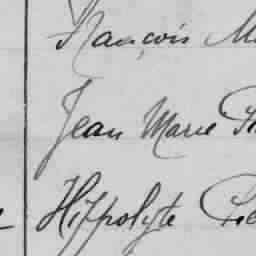 François
Jean Marie
Hippolyte